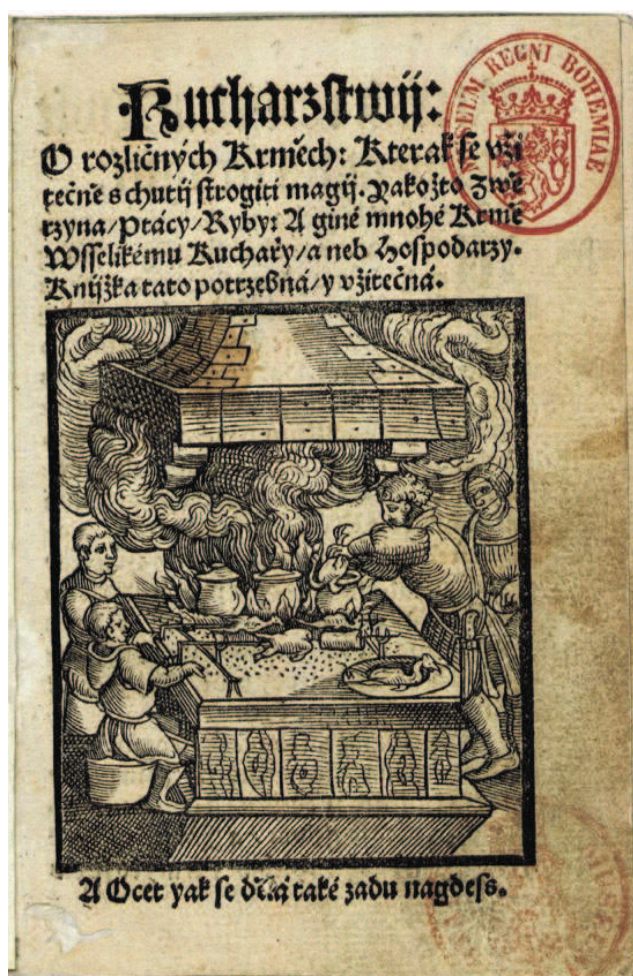 Kucharzstwij:
O rozličných Krměch: Kterak se vži
tečně s chutij strogiti magij. Yakožto Zwě
rzyna/Ptácy/Ryby: A giné mnohé Krmě
Wsselikému Kuchařy/a neb Hospodarzy.
Knijžka tato potrzebná/y vžitečná.
A Ocet yak se dělaj také zadu nagdess.
MUSEUM REGNI BOHEMIAE